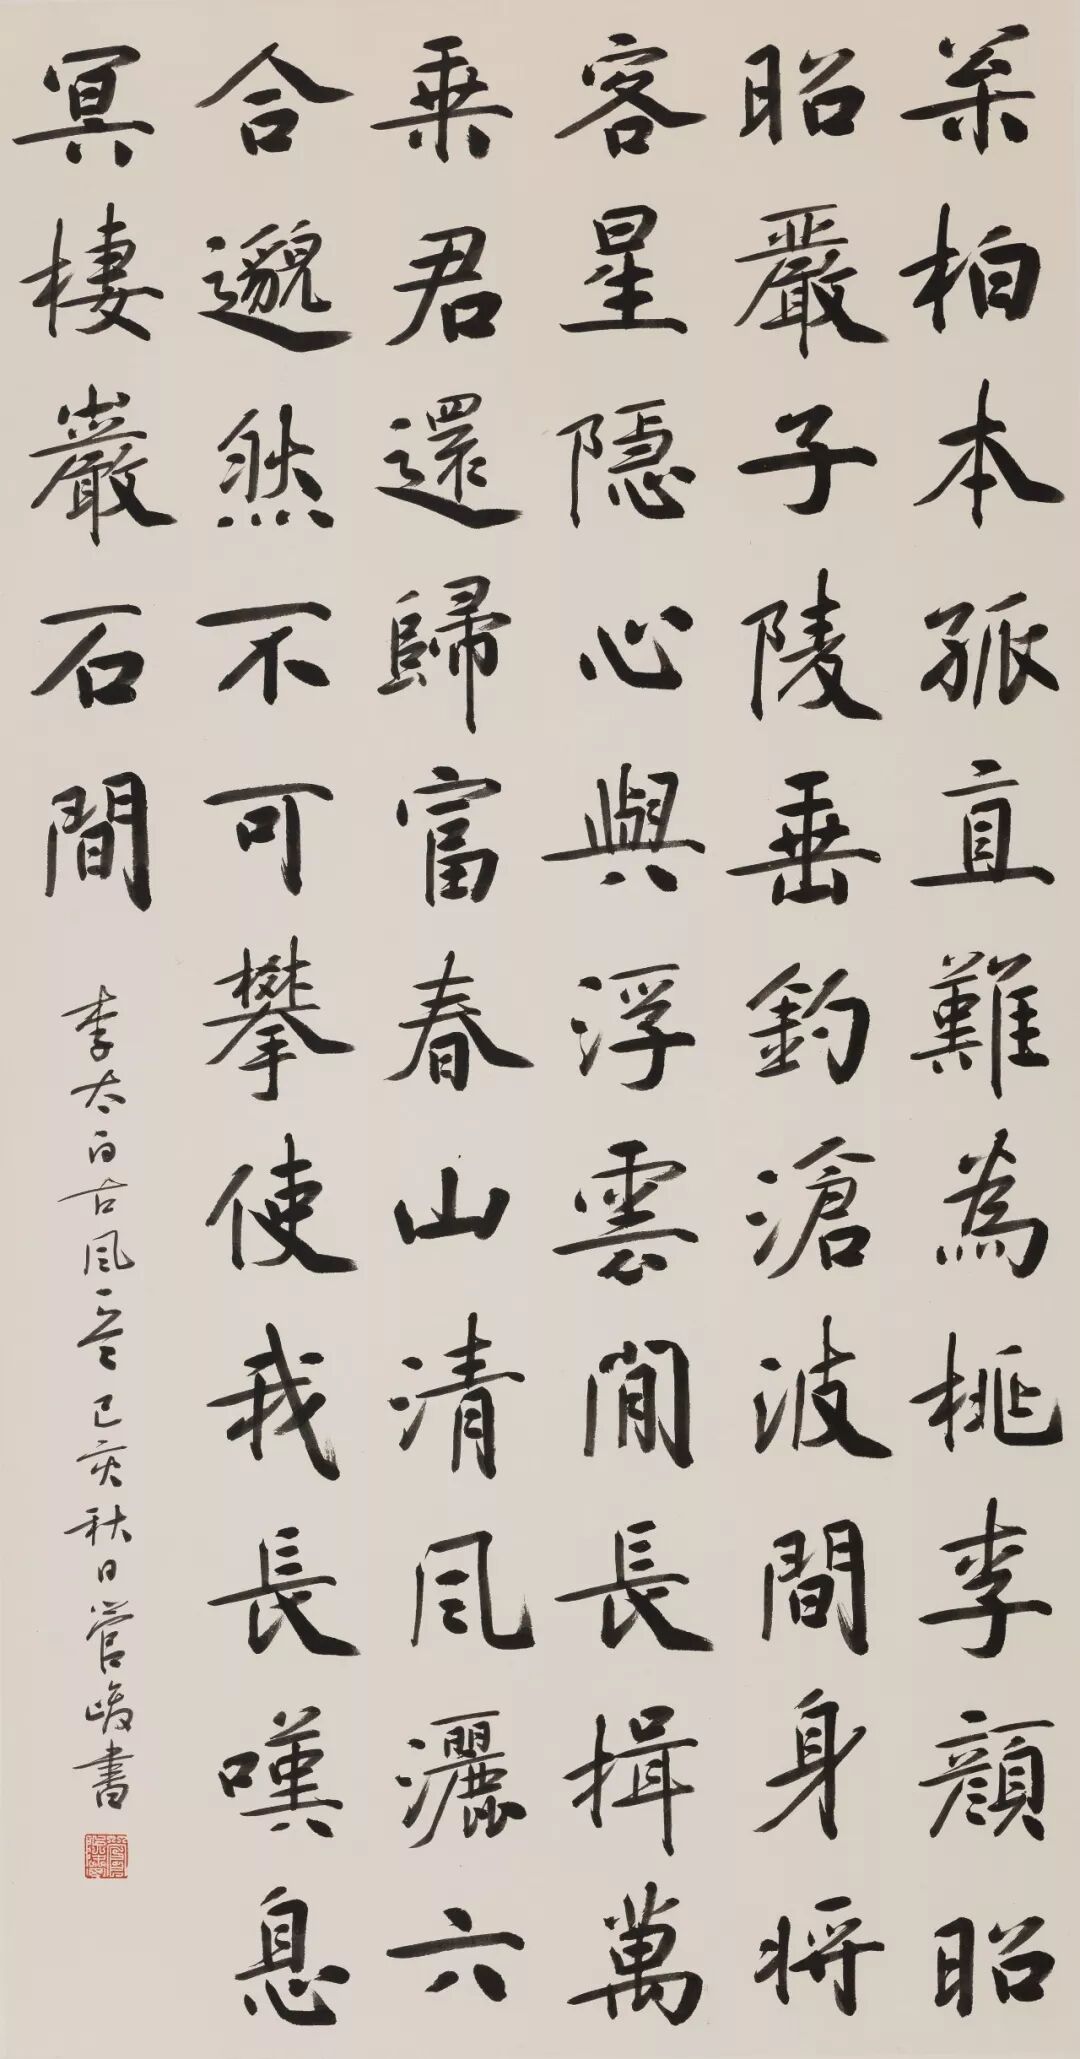 葉柏本孤直難為桃李顏昭
昭嚴子陵垂釣滄波間身將
客星隱心與浮雲閒長揖萬
乗君還歸富春山清風灑六
合邈然不可攀使我長嘆息
冥棲巖石間
李太白古風一首己亥秋日管峻書